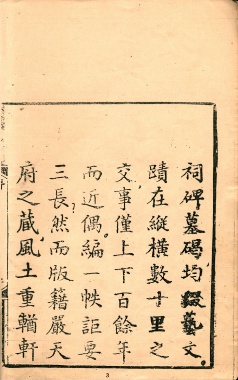 祠碑墓碣均綴藝文
蹟在縱橫數十里之
交事僅上下百餘年
而近偶編一帙詎要
三長然而版籍嚴天
府之蕆風土重輶軒
序
3